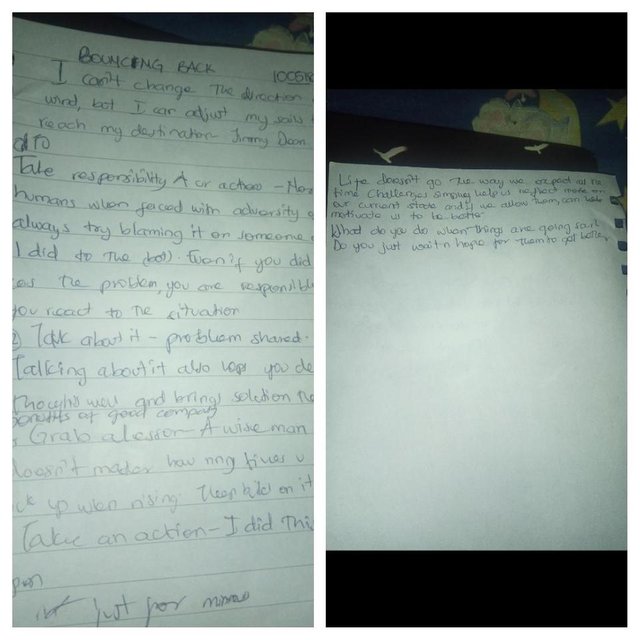 BOUNCING BACK
I can't change The direction
wind, but I can adjust my sails
reach my destination Jimmy Dean
Take responsibility
humans when faced with adversity
always try blaming it on someone
I did to The Even if you did
The problem, you are responsible
you react to The situation
Talk about it - problem shared.
Talking about it also you
Thoughts and brings solution
benefits of good company
Grab a lesson - A wise man
doesn't how times u
up when rising. Then build on it
Take an action - I did This
Just for
Life doesn't go The way we expect
time. Challenges help us reflect more on
our current state and if we allow them, can
motivate us to be better
What do you do when Things are going
Do you just wait n hope for them to get better